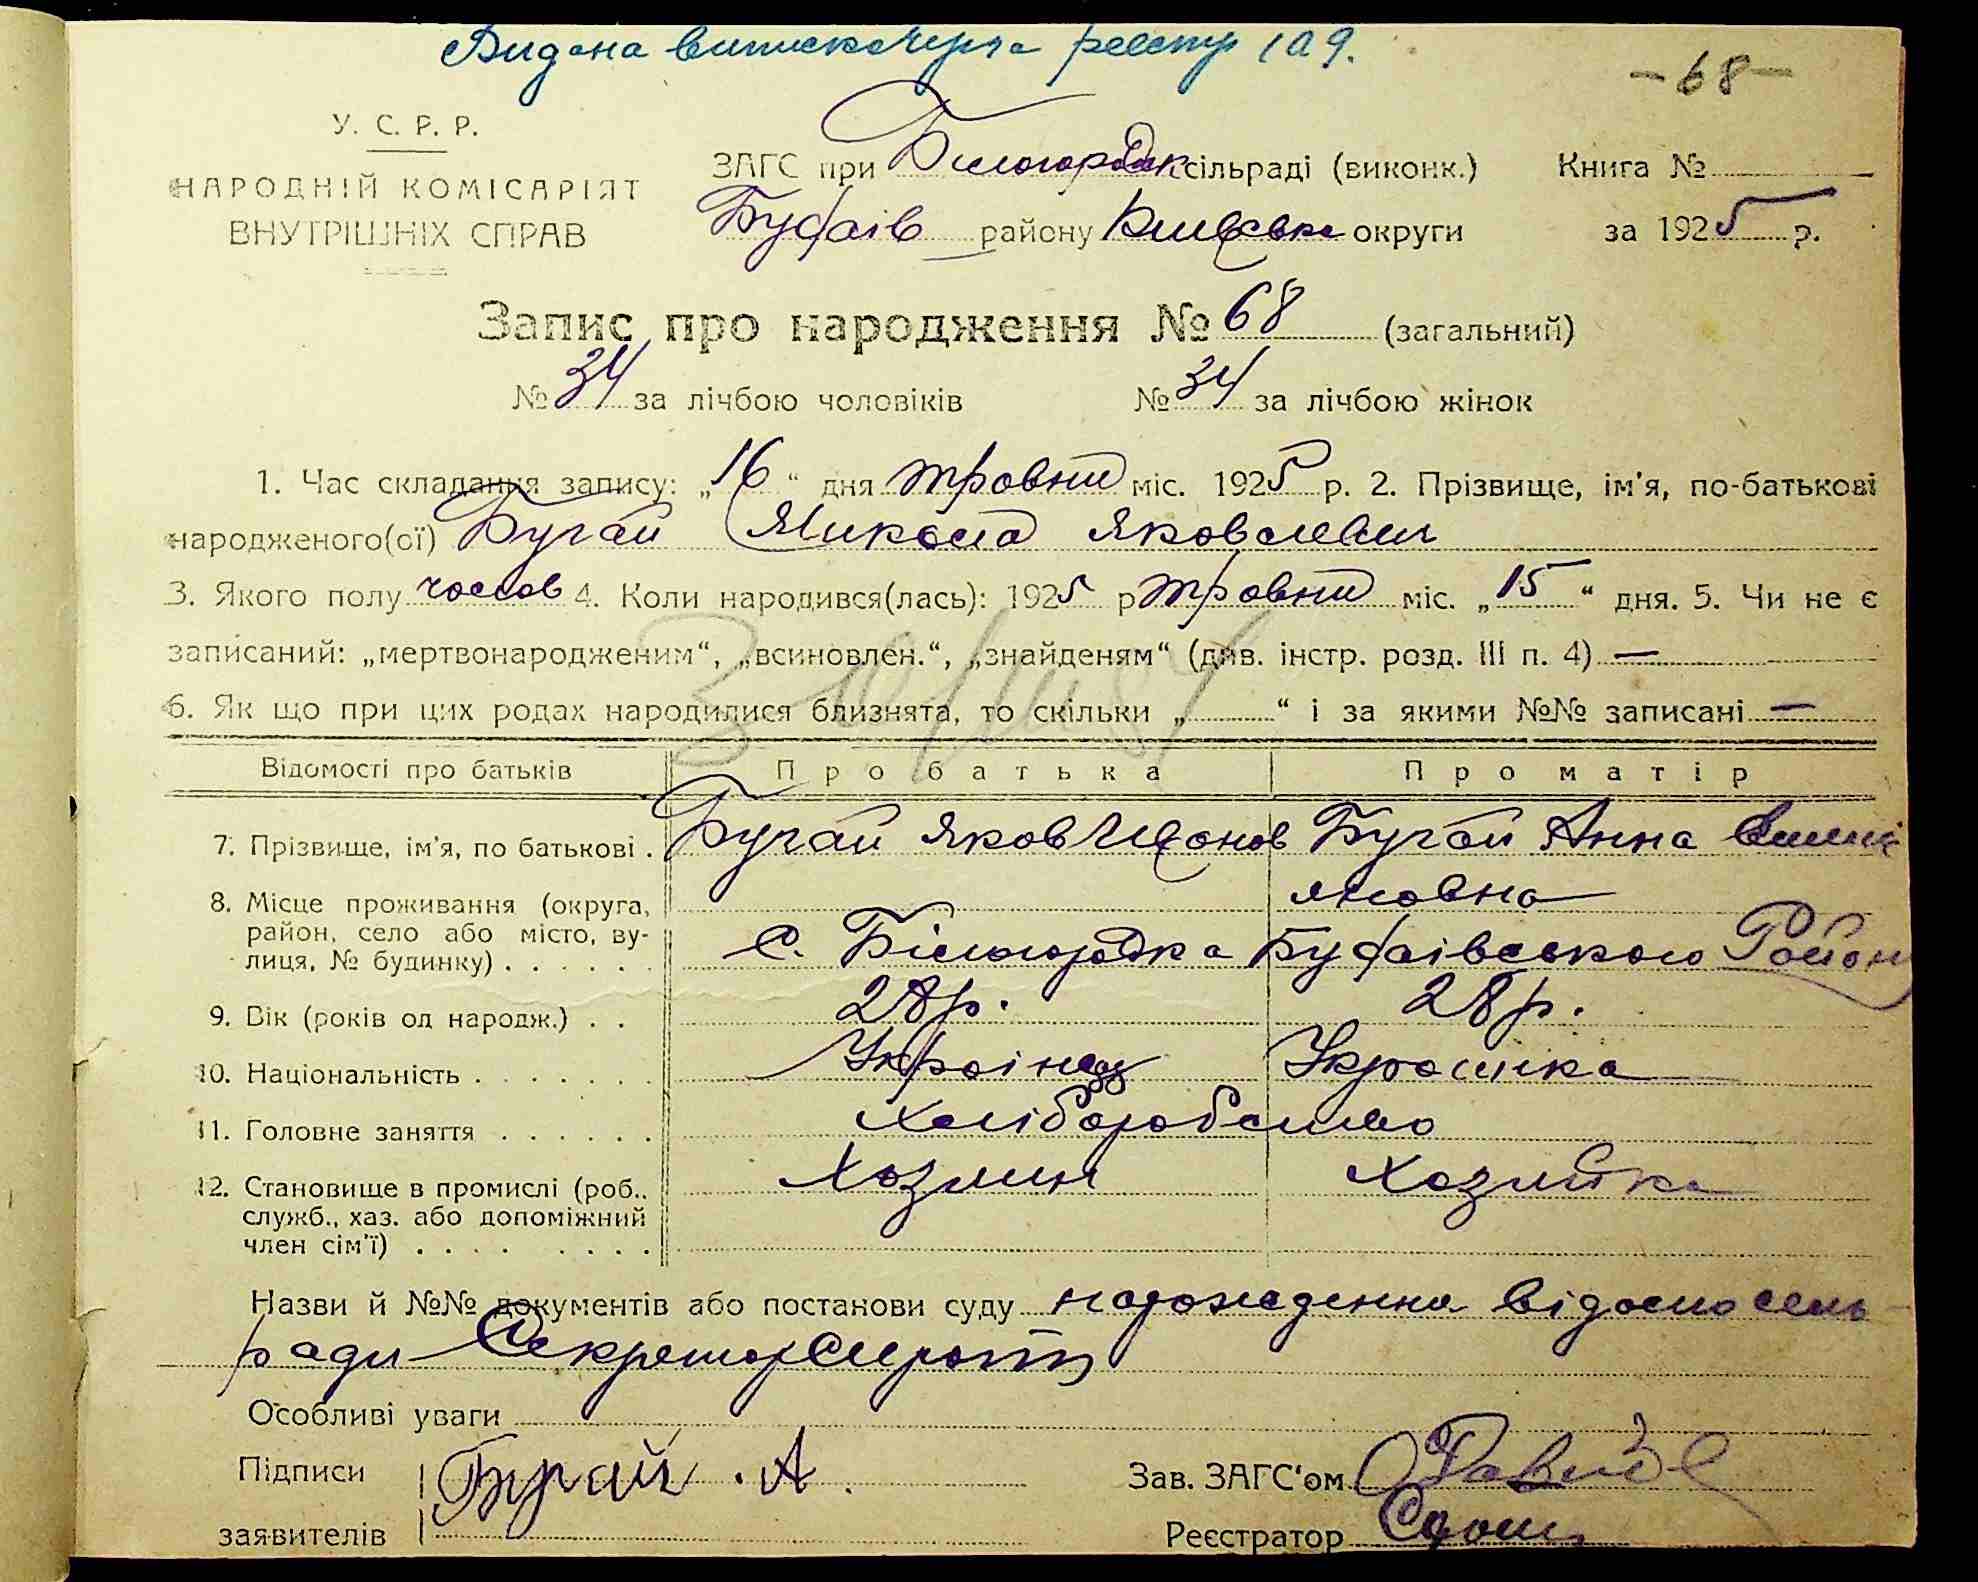 Видана виписка через реєстр 109.
-68-
У. С. Р. Р.
НАРОДНІЙ КОМІСАРІЯТ
ВНУТРІШНІХ СПРАВ
ЗАГС при Білогородк сільраді (виконк.) Книга №
Будаїв району Київська округи за 1925 р.
Запис про народження № 68 (загальний)
№ 34 за лічбою чоловіків № 34 за лічбою жінок
1. Час складання запису: „16“ дня травня міс. 1925 р. 2. Прізвище, ім'я, по-батькові
народженого(ої) Бугай Микола Яковлевич
3. Якого полу чолов 4. Коли народився(лась): 1925 р травня міс. „15“ дня. 5. Чи не є
записаний: „мертвонародженим“, „всиновлен.“, „знайденям“ (див. інстр. розд. III п. 4) —
6. Як що при цих родах народилися близнята, то скільки „ “ і за якими №№ записані —
Відомості про батьків Про батька Про матір
7. Прізвище, ім'я, по батькові . Бугай Яков Иванов Бугай Анна
8. Місце проживання (округа,
район, село або місто, ву-
лиця, № будинку) . . . . . . С. Білогородка Будаівського Району
9. Вік (років од народж.) . . 28 р. 28 р.
10. Національність . . . . . . . Українець Українка
11. Головне заняття . . . . . . Хліборобство
12. Становище в промислі (роб.. Хозяин Хозяйка
служб., хаз. або допоміжний
член сім'ї) . . . . . . . .
Назви й №№ документів або постанови суду народження відомо сель
ради Секретар
Особливі уваги
Підписи Бугай . А . Зав. ЗАГС'ом
заявителів Реєстратор